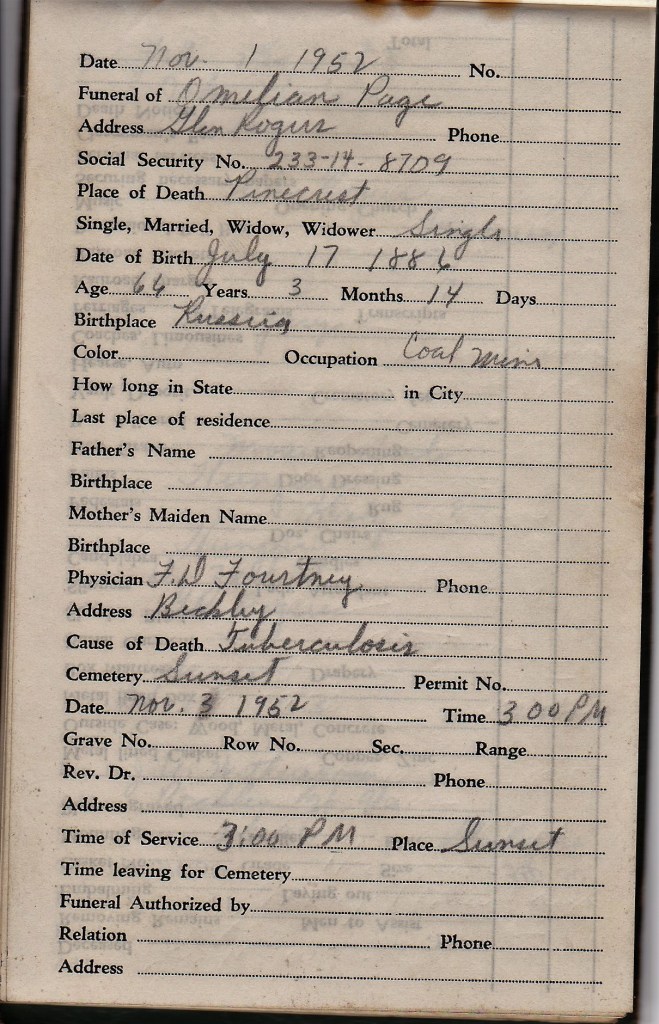 Date Nov. 1 1952 No.
Funeral of Omelian Page
Address Glen Rogers Phone
Social Security No. 233-14-8709
Place of Death Pinecrest
Single, Married, Widow, Widower Single
Date of Birth July 17 1886
Age 66 Years 3 Months 14 Days
Birthplace Russia
Color Occupation Coal Mine
How long in State in City
Last place of residence
Father's Name
Birthplace
Mother's Maiden Name
Birthplace
Physician F. D Fourtney Phone
Address Beckley
Cause of Death Tuberculosis
Cemetery Sunset Permit No.
Date Nov. 3 1952 Time 3 00 PM
Grave No. Row No. Sec. Range
Rev. Dr. Phone
Address
Time of Service 3:00 PM Place Sunset
Time leaving for Cemetery
Funeral Authorized by
Relation Phone
Address